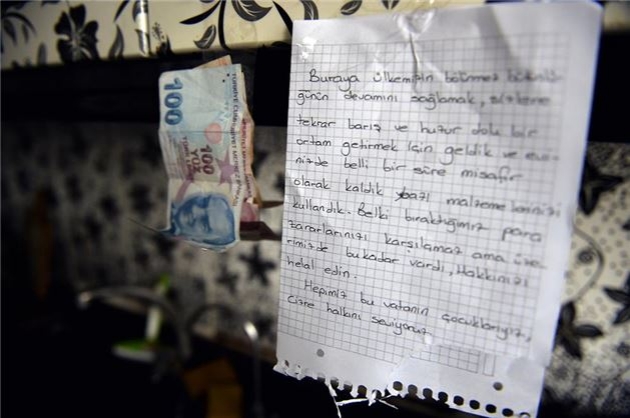 100
TÜRKİYE CUMHURİYET MERKEZ
100
YÜZ
Buraya ülkemizin bölünmez bütünlü-
günün devamını sağlamak, sizlere
tekrar barış ve huzur dolu bir
ortam getirmek için geldik ve evi-
nizde belli bir süre misafir
olarak kaldık bazı malzemelerinizi
kullandık. Belki bıraktığımız para
zararlarınızı karşılamaz ama üze-
rimizde bukadar vardı, Hakkınızı
helal edin.
Hepimiz bu vatanın çocuklarıyız,
Cizre halkını seviyoruz